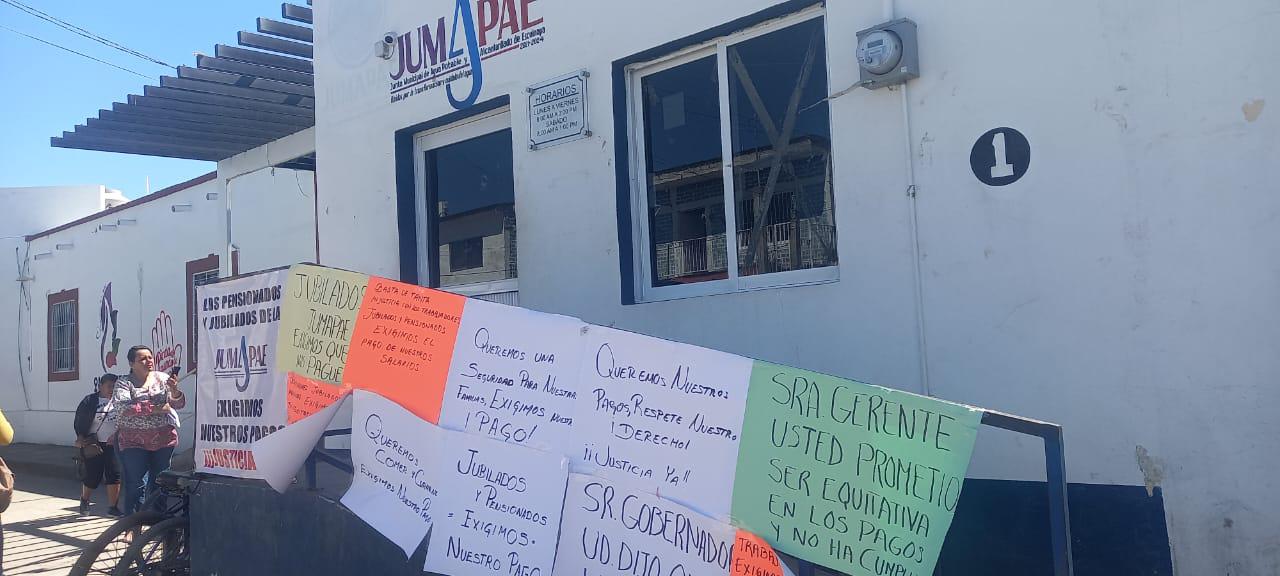 JUMAPAE
Junta Municipal de Agua Potable y Alcantarillado de Escuinapa
2021-2024
HORARIOS
LUNES A VIERNES
8:00 AM A 3:00 PM
SABADO
1
LOS PENSIONADOS
Y JUBILADOS DE LA
JUMAPAE
EXIGIMOS
NUESTROS PAGOS
¡¡JUSTICIA
JUBILADOS
JUMAPAE
EXIGIMOS QUE
NOS PAGUE
BASTA LA TANTA
INJUSTICIA CON LOS TRABAJADORES
JUBILADOS Y PENSIONADOS
EXIGIMOS EL
PAGO DE NUESTROS
SALARIOS
QUEREMOS UNA
SEGURIDAD PARA NUESTRA
FAMILIAS, EXIGIMOS NUESTRO
¡PAGO!
QUEREMOS NUESTROS
PAGOS, RESPETE NUESTRO
¡DERECHO!
¡¡JUSTICIA YA!!
SRA. GERENTE
USTED PROMETIO
SER EQUITATIVA
EN LOS PAGOS
Y NO HA CUMPL
QUEREMOS
COMER Y
EXIGIMOS NUESTRO
JUBILADOS
Y PENSIONADOS
EXIGIMOS
NUESTRO PAGO
SR. GOBERNADO
UD. DIJO QU
TRABAJ
EXIGIMO